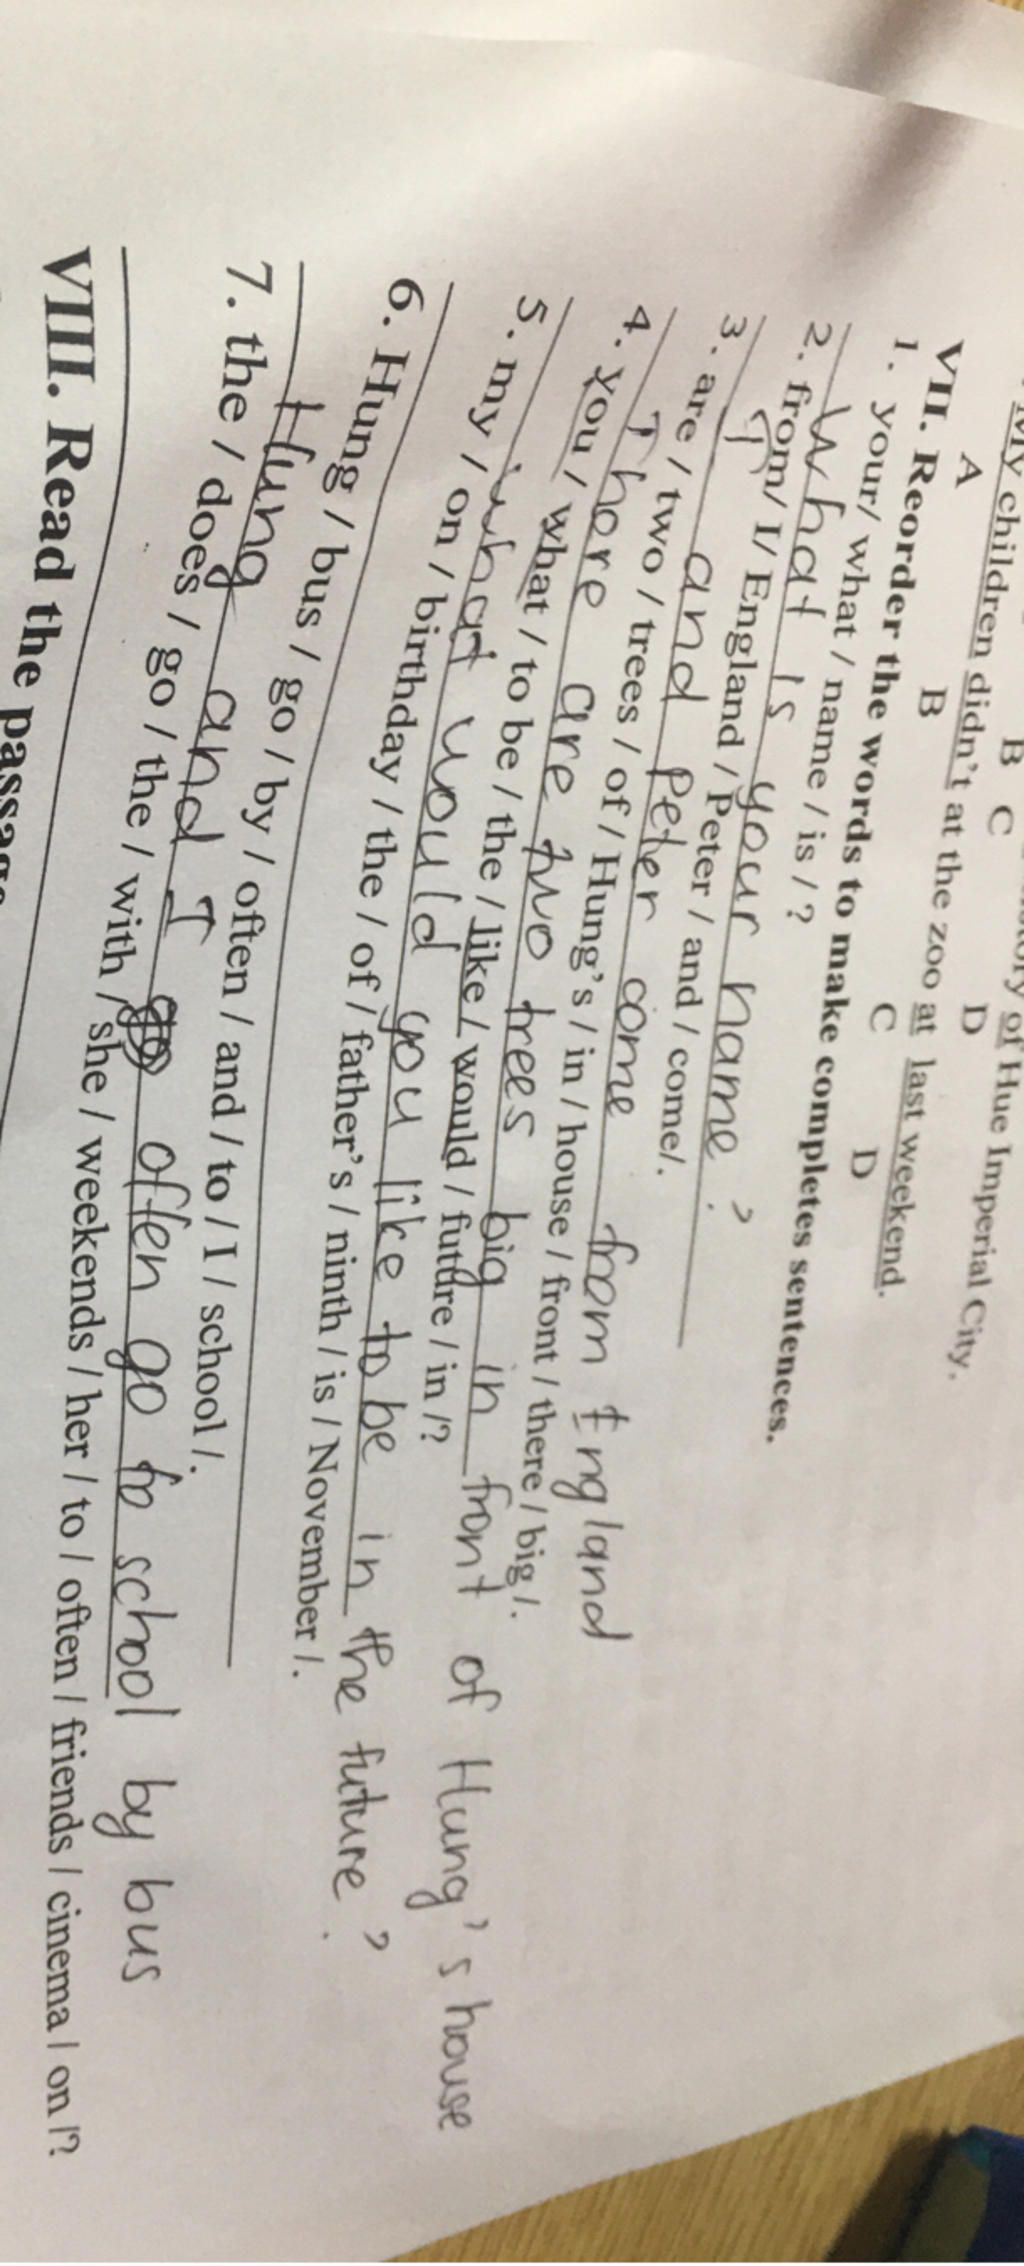 of Hue Imperial City.
B C D
My children didn't at the zoo at last weekend.
A B C D
VII. Reorder the words to make completes sentences.
1. your/ what / name / is / ?
What is your name ?
2. from/ I/ England / Peter / and / come/.
I and Peter come from England
3. are / two / trees / of / Hung's / in / house / front / there / big /.
There are two trees big in front of Hung's house
4. you / what / to be / the / like / would / future / in /?
what would you like to be in the future ?
5. my / on / birthday / the / of / father's / ninth / is / November /.
6. Hung / bus / go / by / often / and / to / I / school /.
Hung and I often go to school by bus
7. the / does / go / the / with / she / weekends / her / to / often / friends / cinema / on /?
VIII. Read the passage